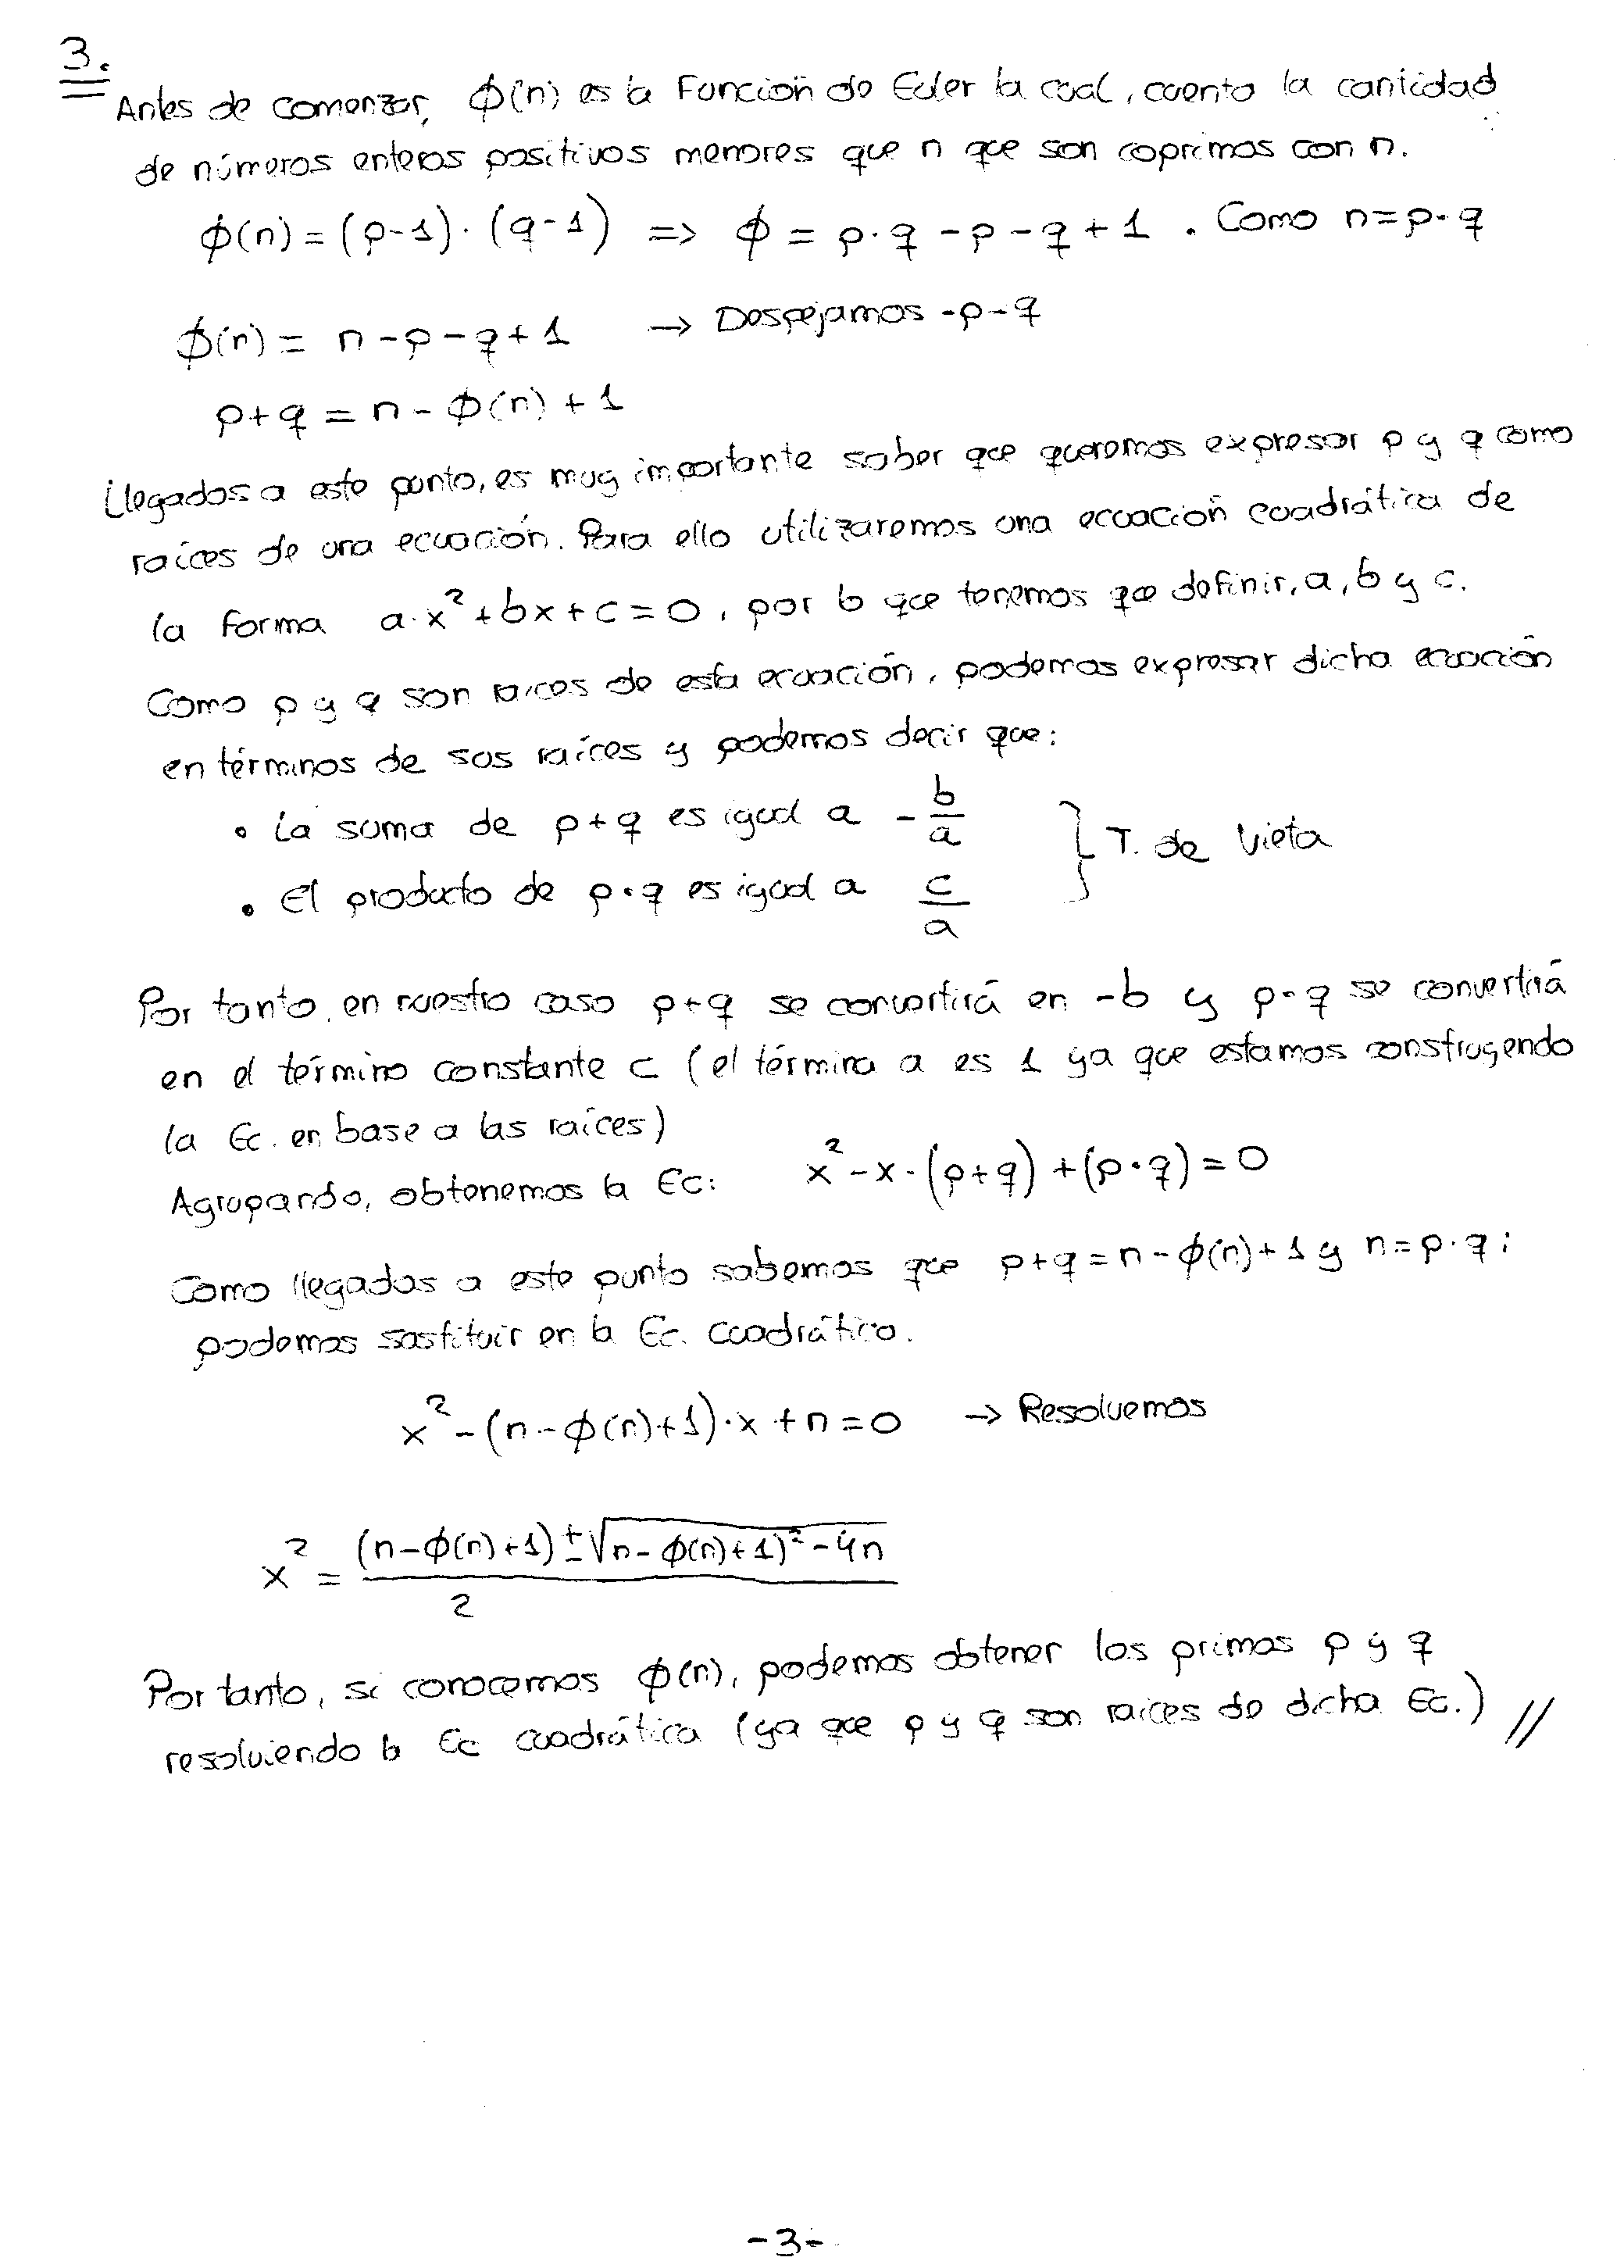 3.
Antes de comenzar, ϕ(n) es la Función de Euler la cual, cuenta la cantidad
de números enteros positivos menores que n que son coprimos con n.
ϕ(n) = (p-1)·(q-1) => ϕ = p·q - p - q + 1 . Como n=p·q
ϕ(n) = n - p - q + 1 → Despejamos -p-q
p+q = n - ϕ(n) + 1
Llegados a este punto, es muy importante saber que queremos expresar p y q como
raíces de una ecuación. Para ello utilizaremos una ecuación cuadrática de
la forma a·x² + bx + c = 0, por lo que tenemos que definir, a, b y c.
Como p y q son raíces de esta ecuación, podemos expresar dicha ecuación
en términos de sus raíces y podemos decir que:
• La suma de p+q es igual a - b/a } T. de Vieta
• El producto de p·q es igual a c/a
Por tanto, en nuestro caso p+q se convertirá en -b y p·q se convertirá
en el término constante c (el término a es 1 ya que estamos construyendo
la Ec. en base a las raíces)
Agrupando, obtenemos la Ec: x² - x·(p+q) + (p·q) = 0
Como llegados a este punto sabemos que p+q = n - ϕ(n) + 1 y n = p·q;
podemos sustituir en la Ec. cuadrática.
x² - (n - ϕ(n)+1)·x + n = 0 → Resolvemos
x² = ((n-ϕ(n)+1) ± √n - ϕ(n)+1)² - 4n) / 2
Por tanto, si conocemos ϕ(n), podemos obtener los primos p y q
resolviendo la Ec cuadrática (ya que p y q son raíces de dicha Ec.) //
-3-